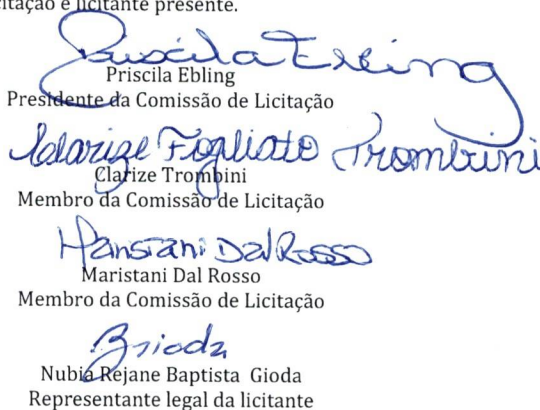 citação e licitante presente.
Priscila Ebling
Priscila Ebling
Presidente da Comissão de Licitação
Clarize Fogliato Trombini
Clarize Trombini
Membro da Comissão de Licitação
Maristani Dal Rosso
Maristani Dal Rosso
Membro da Comissão de Licitação
Gioda
Nubia Rejane Baptista Gioda
Representante legal da licitante